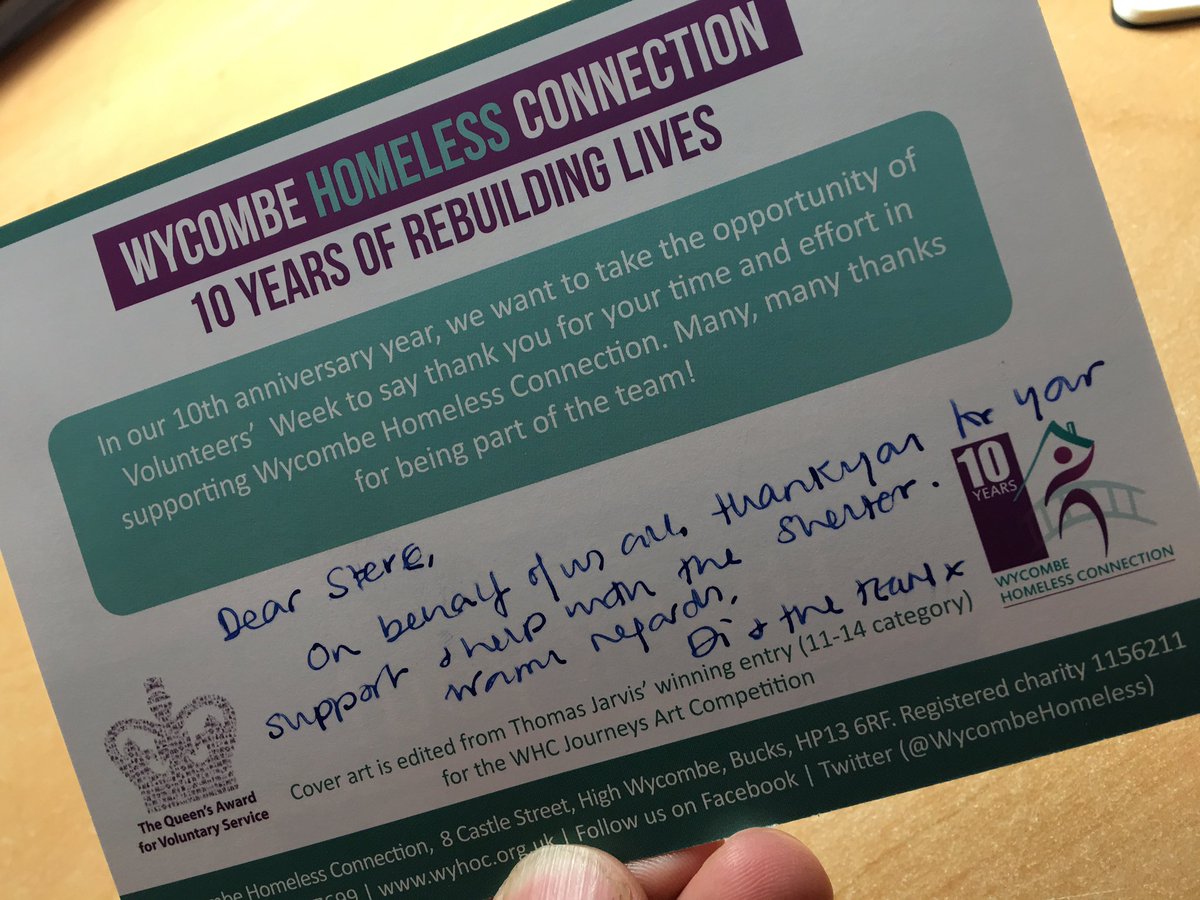 WYCOMBE HOMELESS CONNECTION
10 YEARS OF REBUILDING LIVES
In our 10th anniversary year, we want to take the opportunity of
Volunteers' Week to say thank you for your time and effort in
supporting Wycombe Homeless Connection. Many, many thanks
for being part of the team!
Dear Steve,
On behalf of us all, thankyou for your
support & help with the shelter.
Warm regards,
Di & the team x
10
YEARS
WYCOMBE
HOMELESS CONNECTION
The Queen's Award
for Voluntary Service
Cover art is edited from Thomas Jarvis' winning entry (11-14 category)
for the WHC Journeys Art Competition
Homeless Connection, 8 Castle Street, High Wycombe, Bucks, HP13 6RF. Registered charity 1156211
| www.wyhoc.org.uk | Follow us on Facebook | Twitter (@WycombeHomeless)